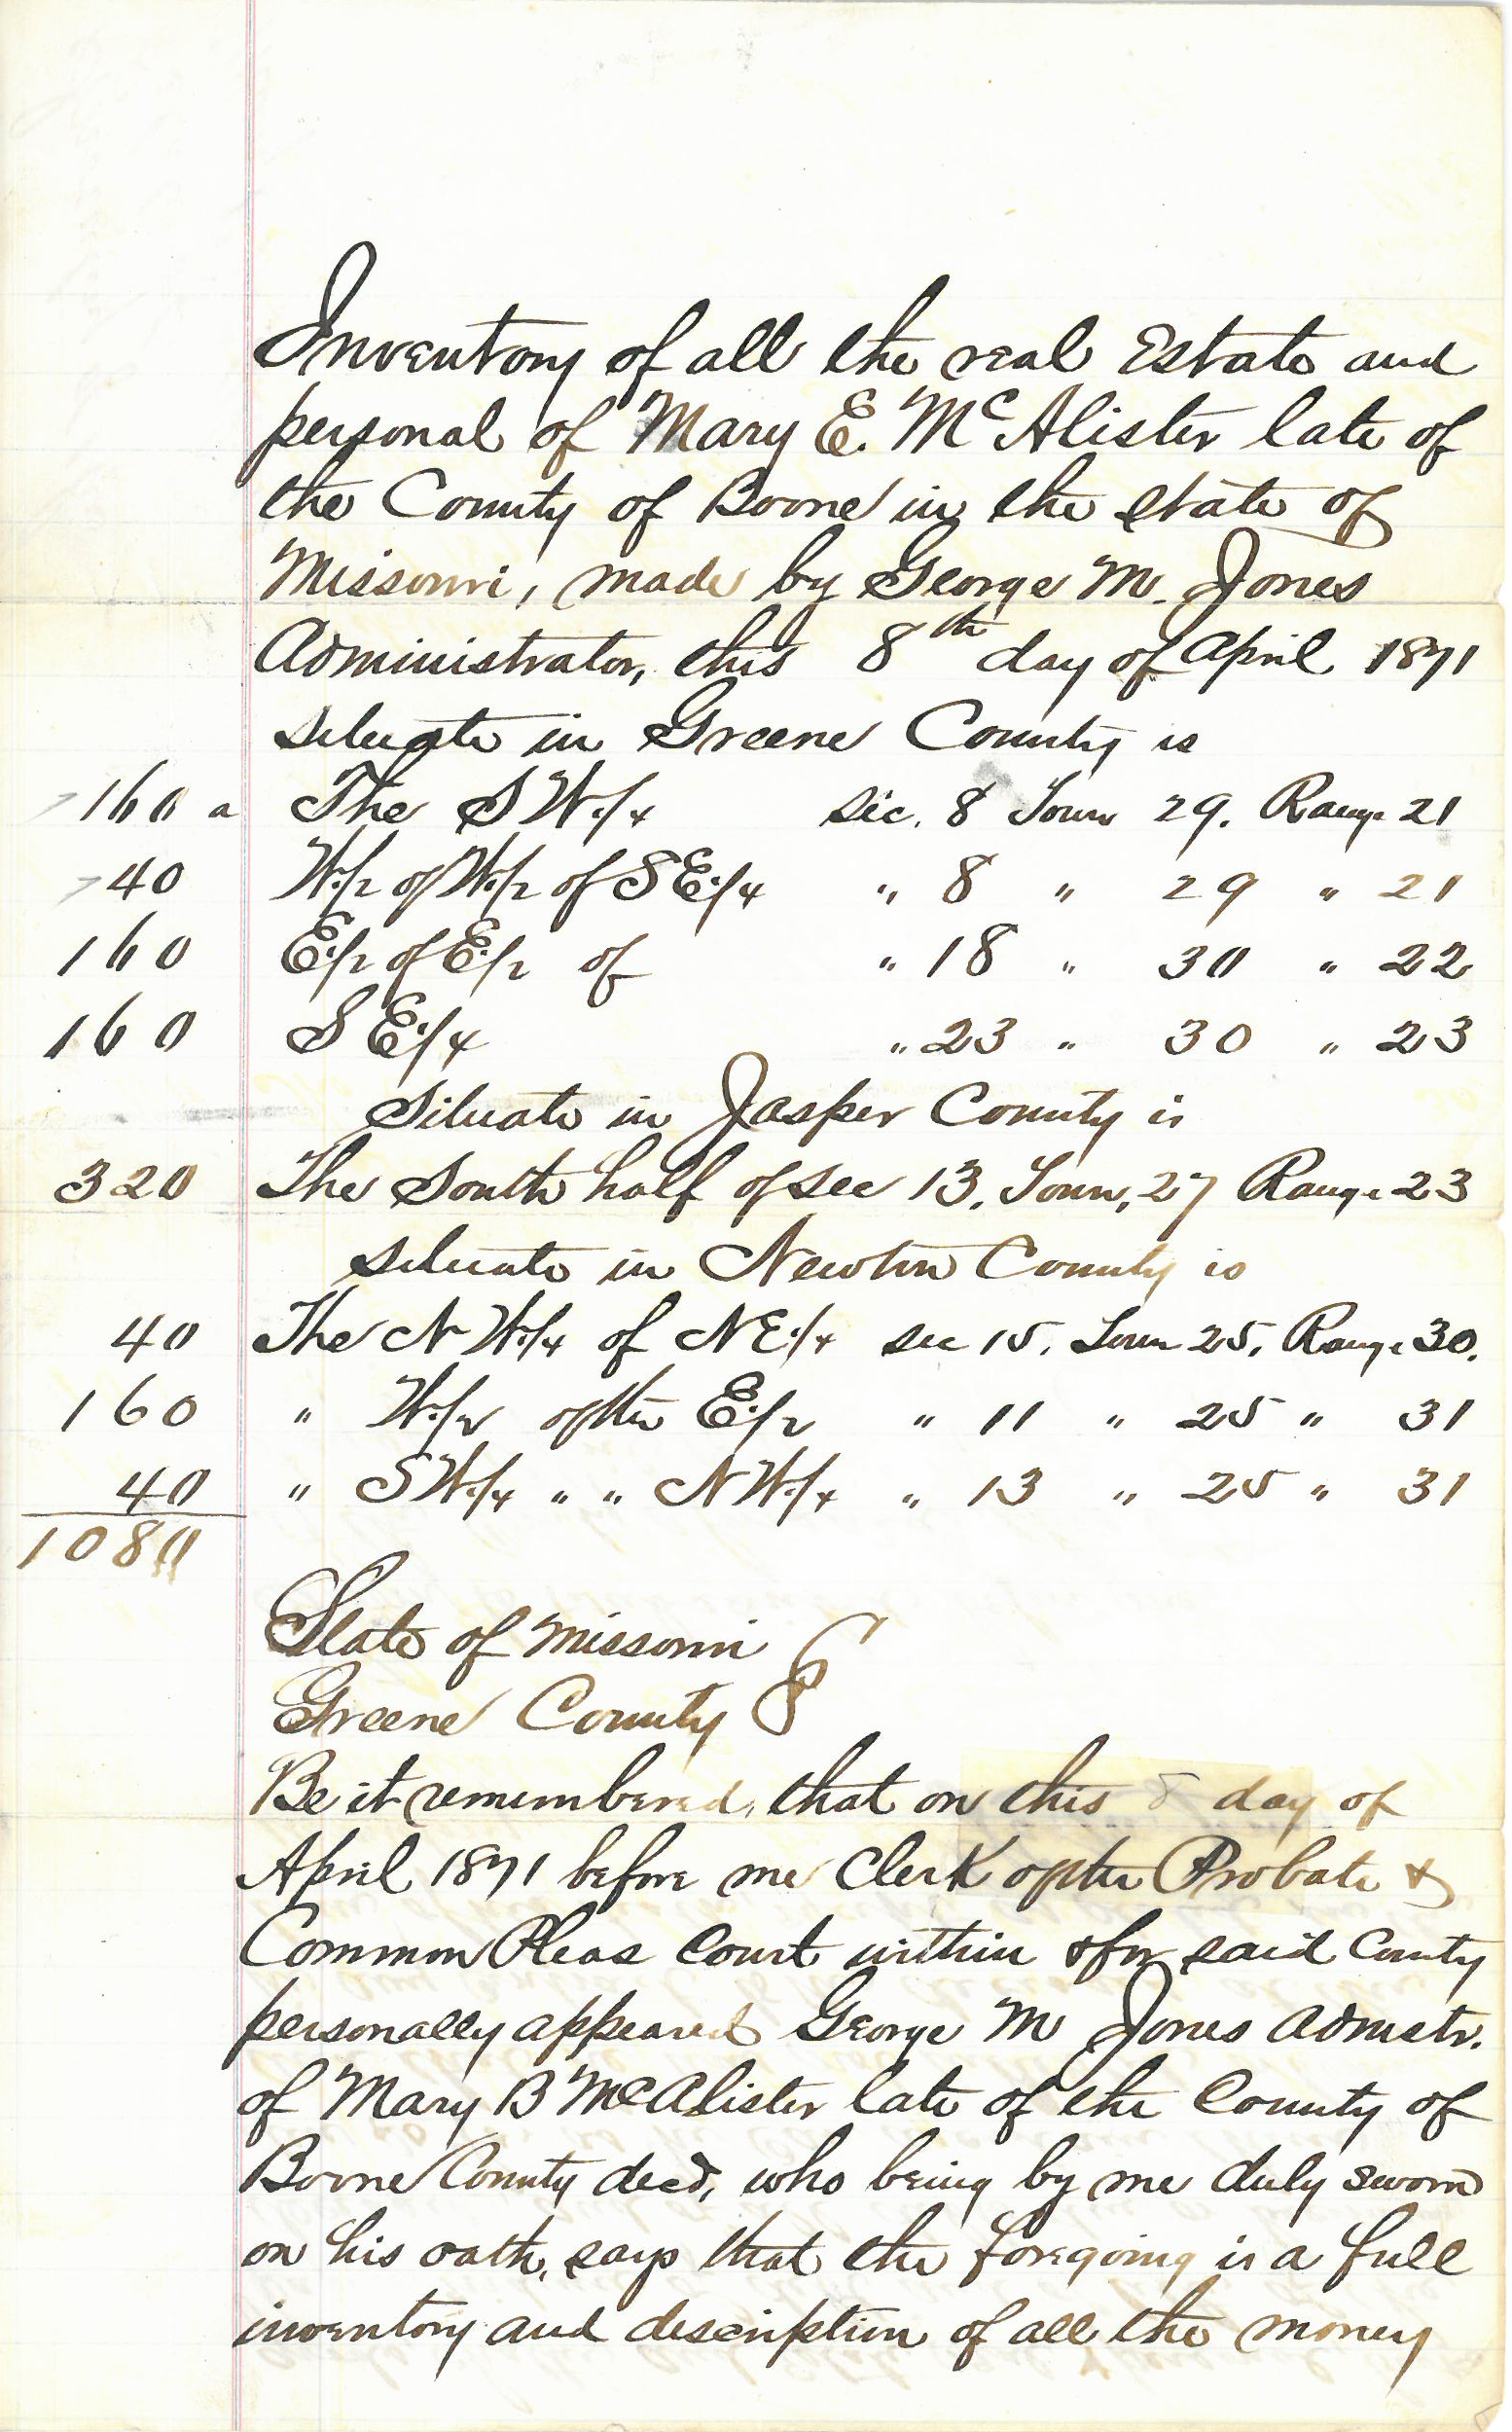 Inventory of all the real Estate and
personal of Mary E. McAlister late of
the County of Boone in the state of
Missouri, made by George M. Jones
Administrator, this 8th day of April 1871
situate in Greene County is
160 a The S W 1/4 Sec. 8 Town 29. Range 21
40 W 1/2 of W 1/2 of S E 1/4 " 8 " 29 " 21
160 E 1/2 of E 1/2 of " 18 " 30 " 22
160 S E 1/4 " 23 " 30 " 23
Situate in Jasper County is
320 The South half of sec 13. Town. 27 Range 23
situate in Newton County is
40 The N W 1/4 of N E 1/4 sec 15. Town 25. Range 30.
160 " W 1/2 of the E 1/2 " 11 " 25 " 31
40 " S W 1/4 " " N W 1/4 " 13 " 25 " 31
1080
State of Missouri
Greene County
Be it remembered, that on this 8 day of
April 1871 before me Clerk of the Probate &
Common Pleas Court within & for said County
personally appeared George M Jones Admstr.
of Mary B McAlister late of the County of
Boone County decd, who being by me duly sworn
on his oath, says that the foregoing is a full
inventory and description of all the money